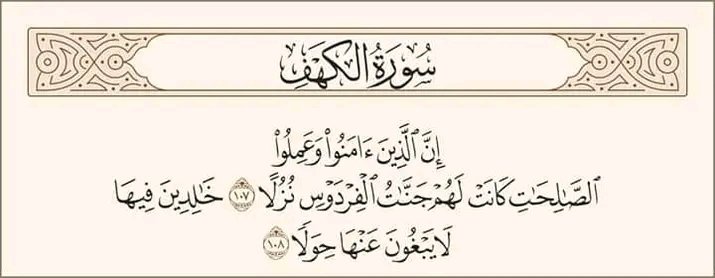 سُورَةُ الكَهۡفِ
إِنَّ ٱلَّذِينَ ءَامَنُواْ وَعَمِلُواْ
ٱلصَّٰلِحَٰتِ كَانَتۡ لَهُمۡ جَنَّٰتُ ٱلۡفِرۡدَوۡسِ نُزُلًا ١٠٧ خَٰلِدِينَ فِيهَا
لَا يَبۡغُونَ عَنۡهَا حِوَلٗا ١٠٨